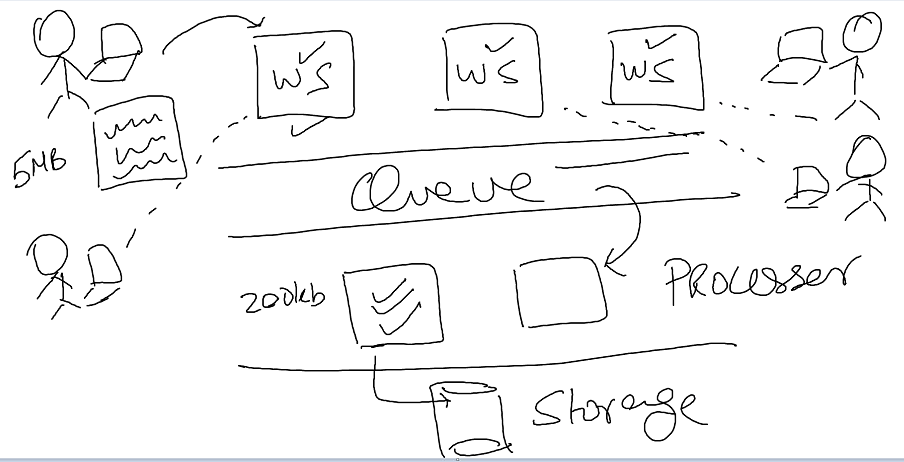 WS
WS
WS
5MB
Queue
200kb
Processer
Storage